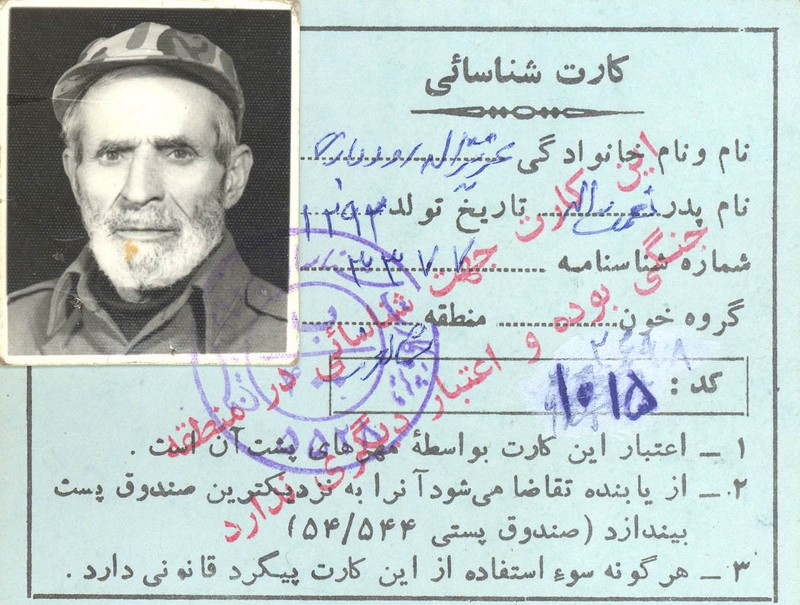 کارت شناسائی
نام و نام خانوادگی عزیزاله
نام پدر نعمت اله تاریخ تولد ۱۲۹۳
شماره شناسنامه ۲۳۷۷
گروه خون منطقه
کد : ۱۰۱۵
۱ ــ اعتبار این کارت بواسطهٔ مهرهای پشت آن است .
۲ ــ از یابنده تقاضا می‌شود آنرا به نزدیکترین صندوق پست
بیندازد (صندوق پستی ۵۴/۵۴۴)
۳ ــ هرگونه سوء استفاده از این کارت پیگرد قانونی دارد .
این کارت جهت شناسائی در منطقه
جنگی بوده و اعتبار دیگری ندارد